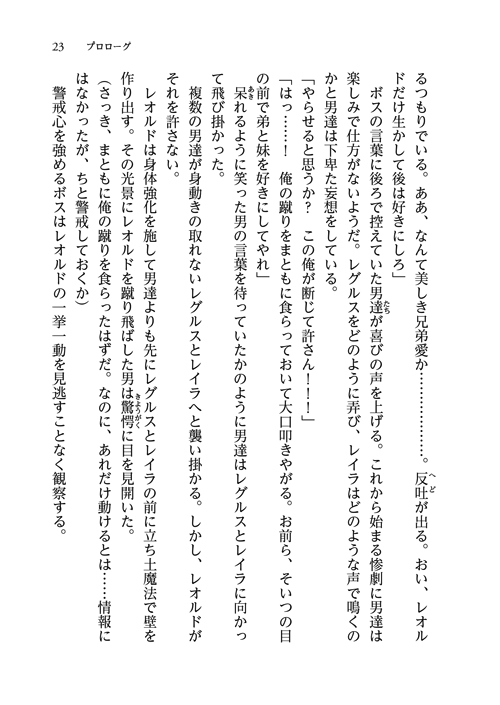 23　プロローグ
るつもりでいる。ああ、なんて美しき兄弟愛か………………。反吐が出る。おい、レオル
ドだけ生かして後は好きにしろ」
ボスの言葉に後ろで控えていた男達が喜びの声を上げる。これから始まる惨劇に男達は
楽しみで仕方がないようだ。レグルスをどのように弄び、レイラはどのような声で鳴くの
かと男達は下卑た妄想をしている。
「やらせると思うか？　この俺が断じて許さん！！！」
「はっ……！　俺の蹴りをまともに食らっておいて大口叩きやがる。お前ら、そいつの目
の前で弟と妹を好きにしてやれ」
呆れるように笑った男の言葉を待っていたかのように男達はレグルスとレイラに向かっ
て飛び掛かった。
複数の男達が身動きの取れないレグルスとレイラへと襲い掛かる。しかし、レオルドが
それを許さない。
レオルドは身体強化を施して男達よりも先にレグルスとレイラの前に立ち土魔法で壁を
作り出す。その光景にレオルドを蹴り飛ばした男は驚愕に目を見開いた。
（さっき、まともに俺の蹴りを食らったはずだ。なのに、あれだけ動けるとは……情報に
はなかったが、ちと警戒しておくか）
警戒心を強めるボスはレオルドの一挙一動を見逃すことなく観察する。